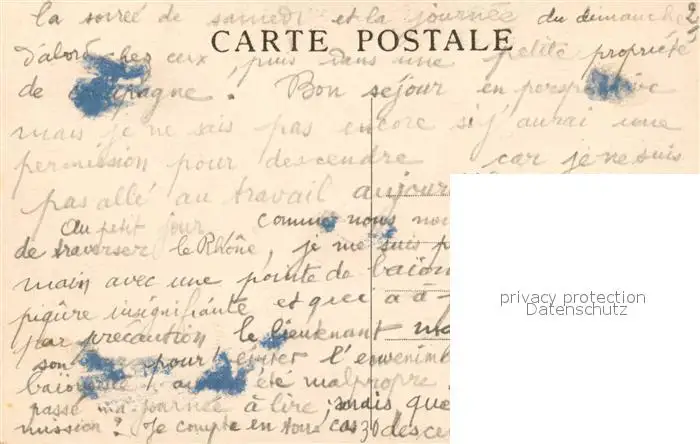 la soirée de samedi et la journée du dimanche
CARTE POSTALE
d'abord chez eux, puis dans une petite propriété
de campagne. Bon séjour en perspective
mais je ne sais pas encore si j'aurai une
permission pour descendre car je ne suis
pas allé au travail
Au petit jour, comme nous
de traverser le Rhône, je me suis
main avec une pointe de
piqûre insignifiante et qui a
par précaution le lieutenant
pour éviter
été malpropre
passé ma journée à lire; mais que
mission? Je compte en tous cas
privacy protection
Datenschutz